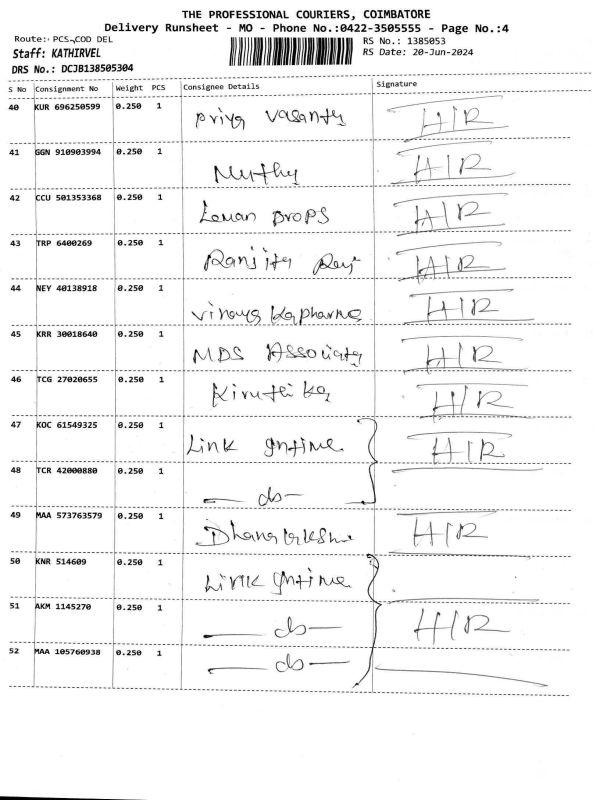 THE PROFESSIONAL COURIERS, COIMBATORE
Delivery Runsheet - MO - Phone No.:0422-3505555 - Page No.:4
Route: PCS-COD DEL RS No.: 1385053
Staff: KATHIRVEL RS Date: 20-Jun-2024
DRS No.: DCJB138505304
S No Consignment No Weight PCS Consignee Details Signature
40 KUR 696250599 0.250 1 Priya Vasanth H/R
41 GGN 910903994 0.250 1 H/R
42 CCU 501353368 0.250 1 Leman Drops H/R
43 TRP 6400269 0.250 1 Ranjita H/R
44 NEY 40138918 0.250 1 Vinayaka pharma H/R
45 KRR 30018640 0.250 1 MDS Associates H/R
46 TCG 27020655 0.250 1 Kiruthika H/R
47 KOC 61549325 0.250 1 Link Intime H/R
48 TCR 42000880 0.250 1 — do —
49 MAA 573763579 0.250 1 Dhanalakshmi H/R
50 KNR 514609 0.250 1 Link Intime
51 AKM 1145270 0.250 1 — do — H/R
52 MAA 105760938 0.250 1 — do —